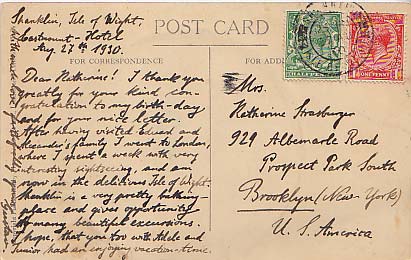 Shanklin, Isle of Wight,
Eastmount-Hotel
Aug. 27th 1930.
POST CARD
FOR CORRESPONDENCE
FOR ADD
HALFPENNY
ONE PENNY
Dear Katherine! I thank you
greatly for your kind con-
gratulation to my birth-day
and for your nice letter.
After having visited Eduard and
Alexander's family I went to London,
where I spent a week with very
interesting sightseeing, and am
now in the delicious Isle of Wight.
Shanklin is a very pretty bathing-
place and gives opportunity
of many beautiful excursions.
I hope, that you too with Adele and
Junior had an enjoying vacation-time.
Mrs.
Katherine Strasburger
929 Albemarle Road
Prospect Park South
Brooklyn (New-York)
U. S. America